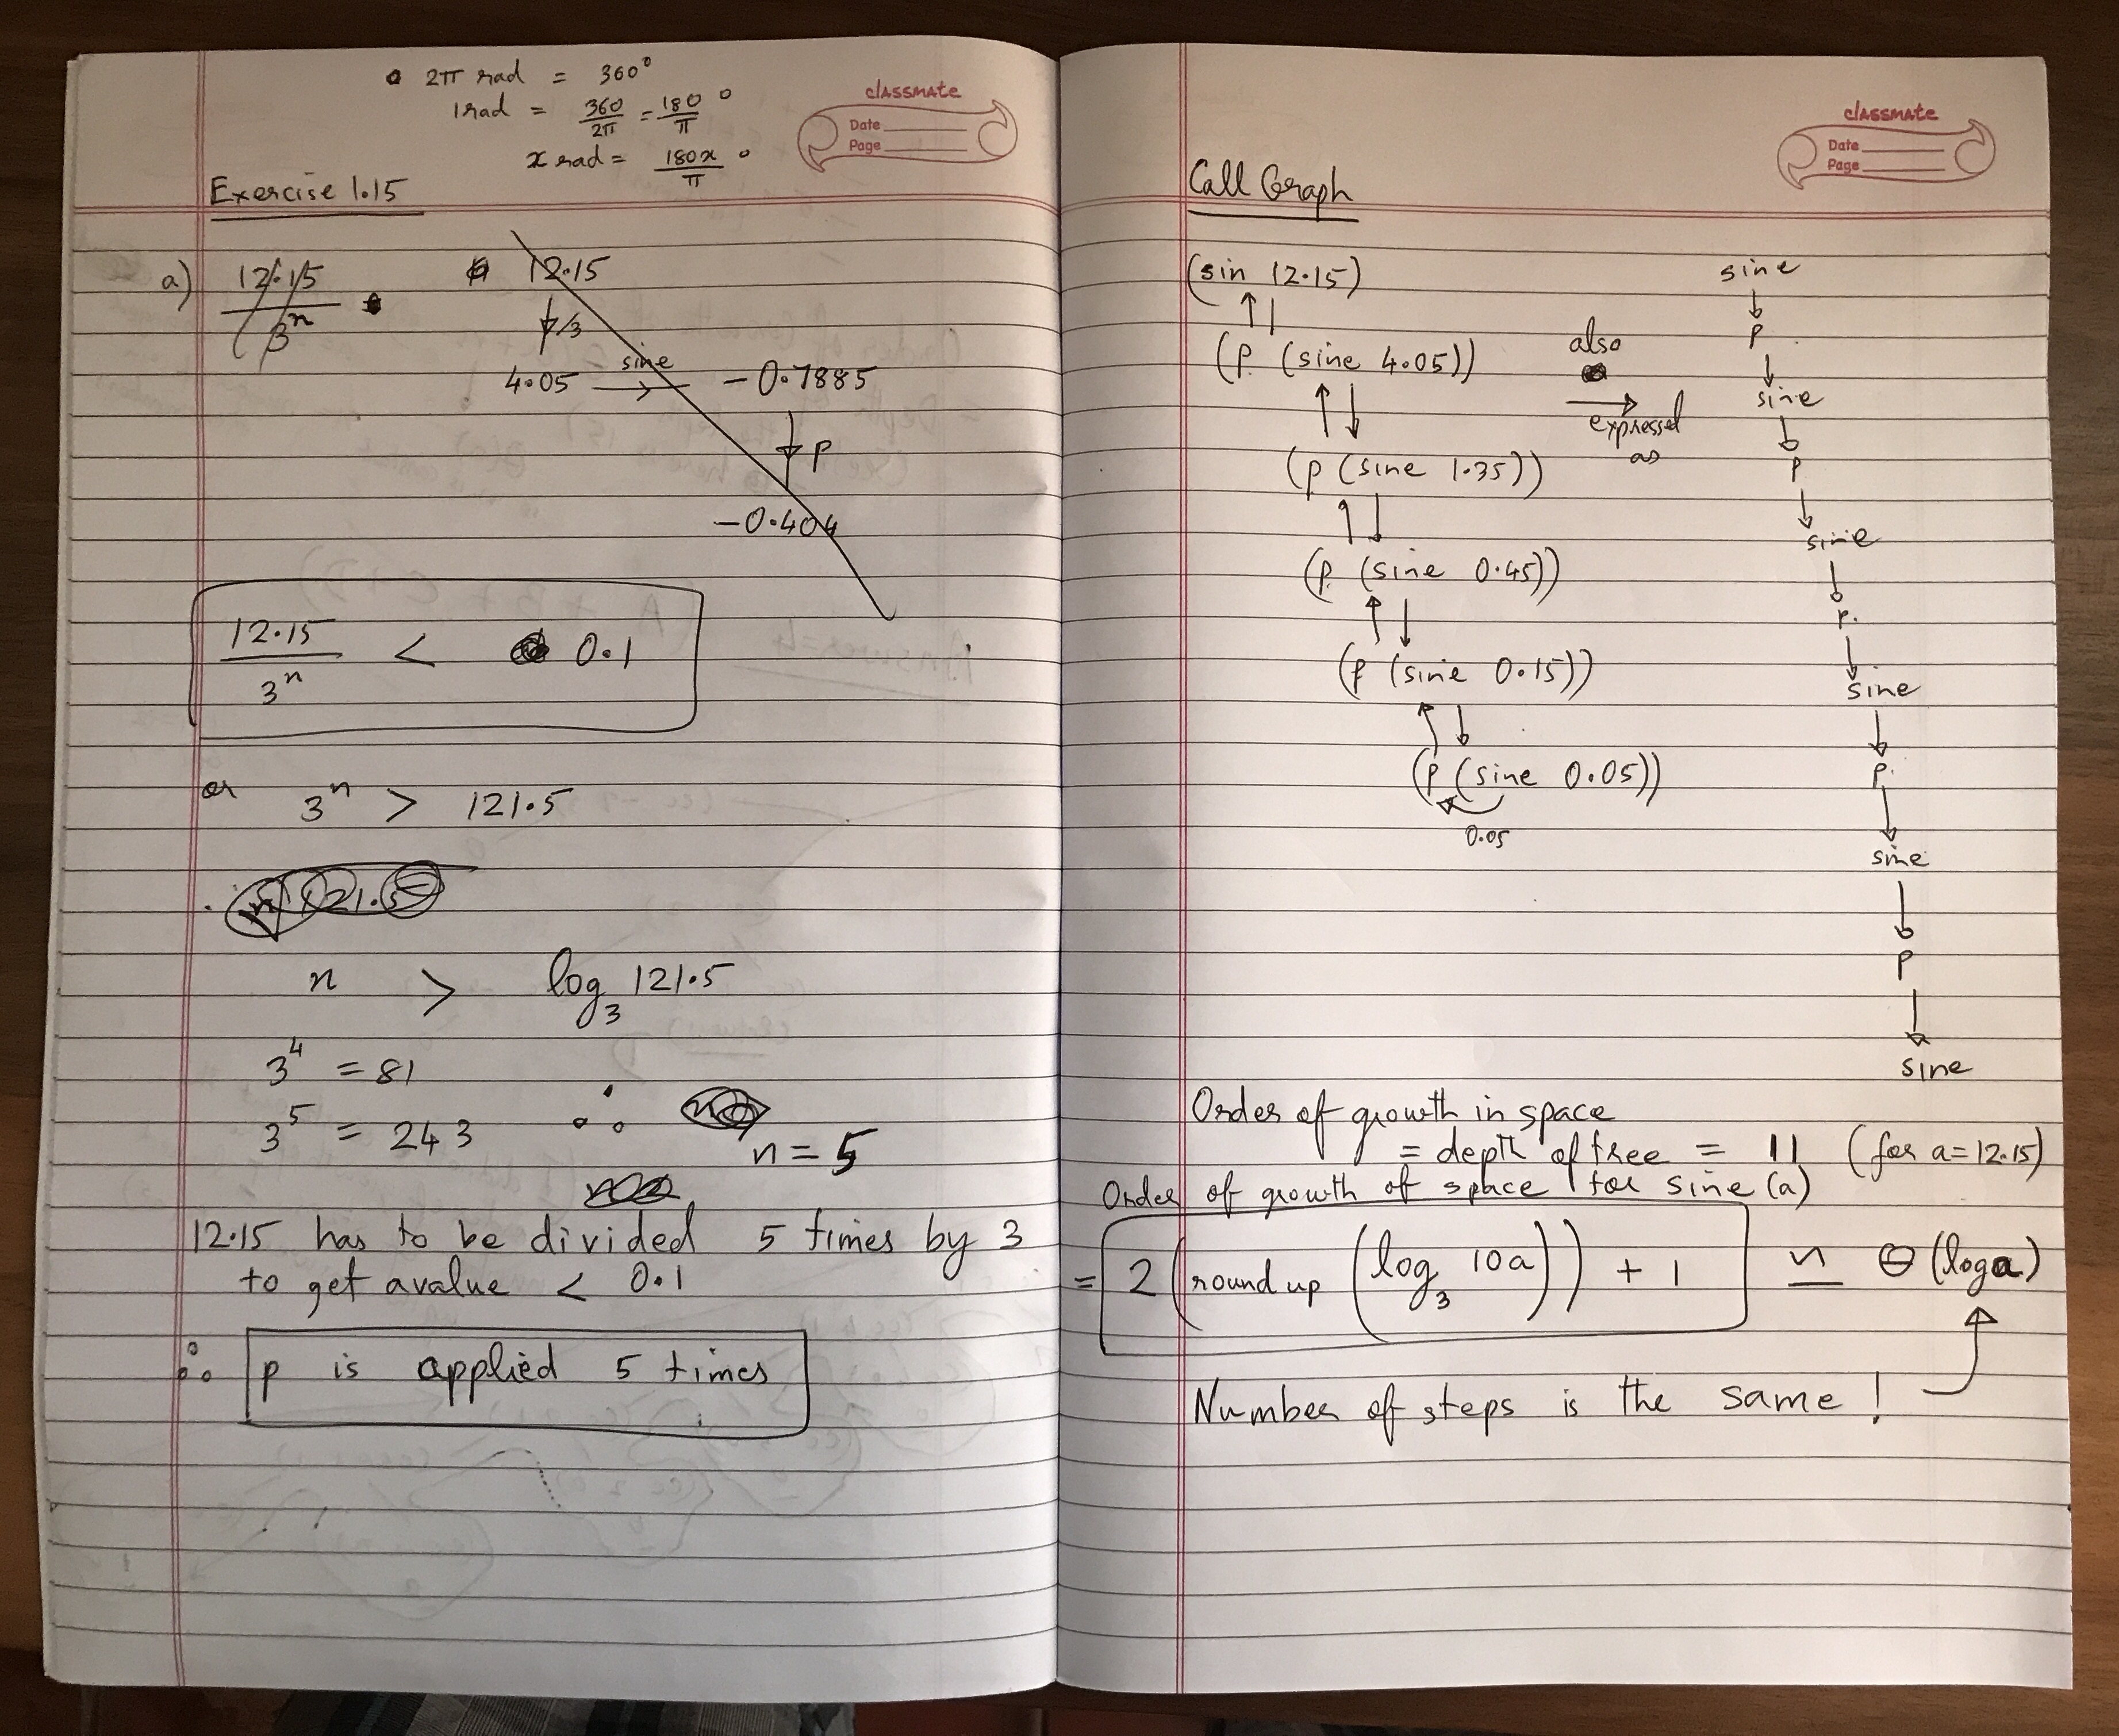 2π rad = 360°
1 rad = 360/2π = 180/π °
x rad = 180x/π °
classmate
Date
Page
Exercise 1.15
a) 12.15/3ⁿ
12.15
/3
4.05 sine → -0.7885
p
-0.404
12.15/3ⁿ < 0.1
or 3ⁿ > 121.5
n > log₃ 121.5
3⁴ = 81
3⁵ = 243 ∴ n = 5
12.15 has to be divided 5 times by 3
to get a value < 0.1
∴ p is applied 5 times
classmate
Date
Page
Call Graph
(sin 12.15)
(p (sine 4.05))
(p (sine 1.35))
(p (sine 0.45))
(p (sine 0.15))
(p (sine 0.05))
0.05
also
→
expressed
as
sine
p
sine
p
sine
p.
sine
p.
sine
p
sine
Order of growth in space
= depth of tree = 11 (for a=12.15)
Order of growth of space for sine (a)
= 2 (round up (log₃ 10a)) + 1 ≃ Θ (log a)
Number of steps is the same !